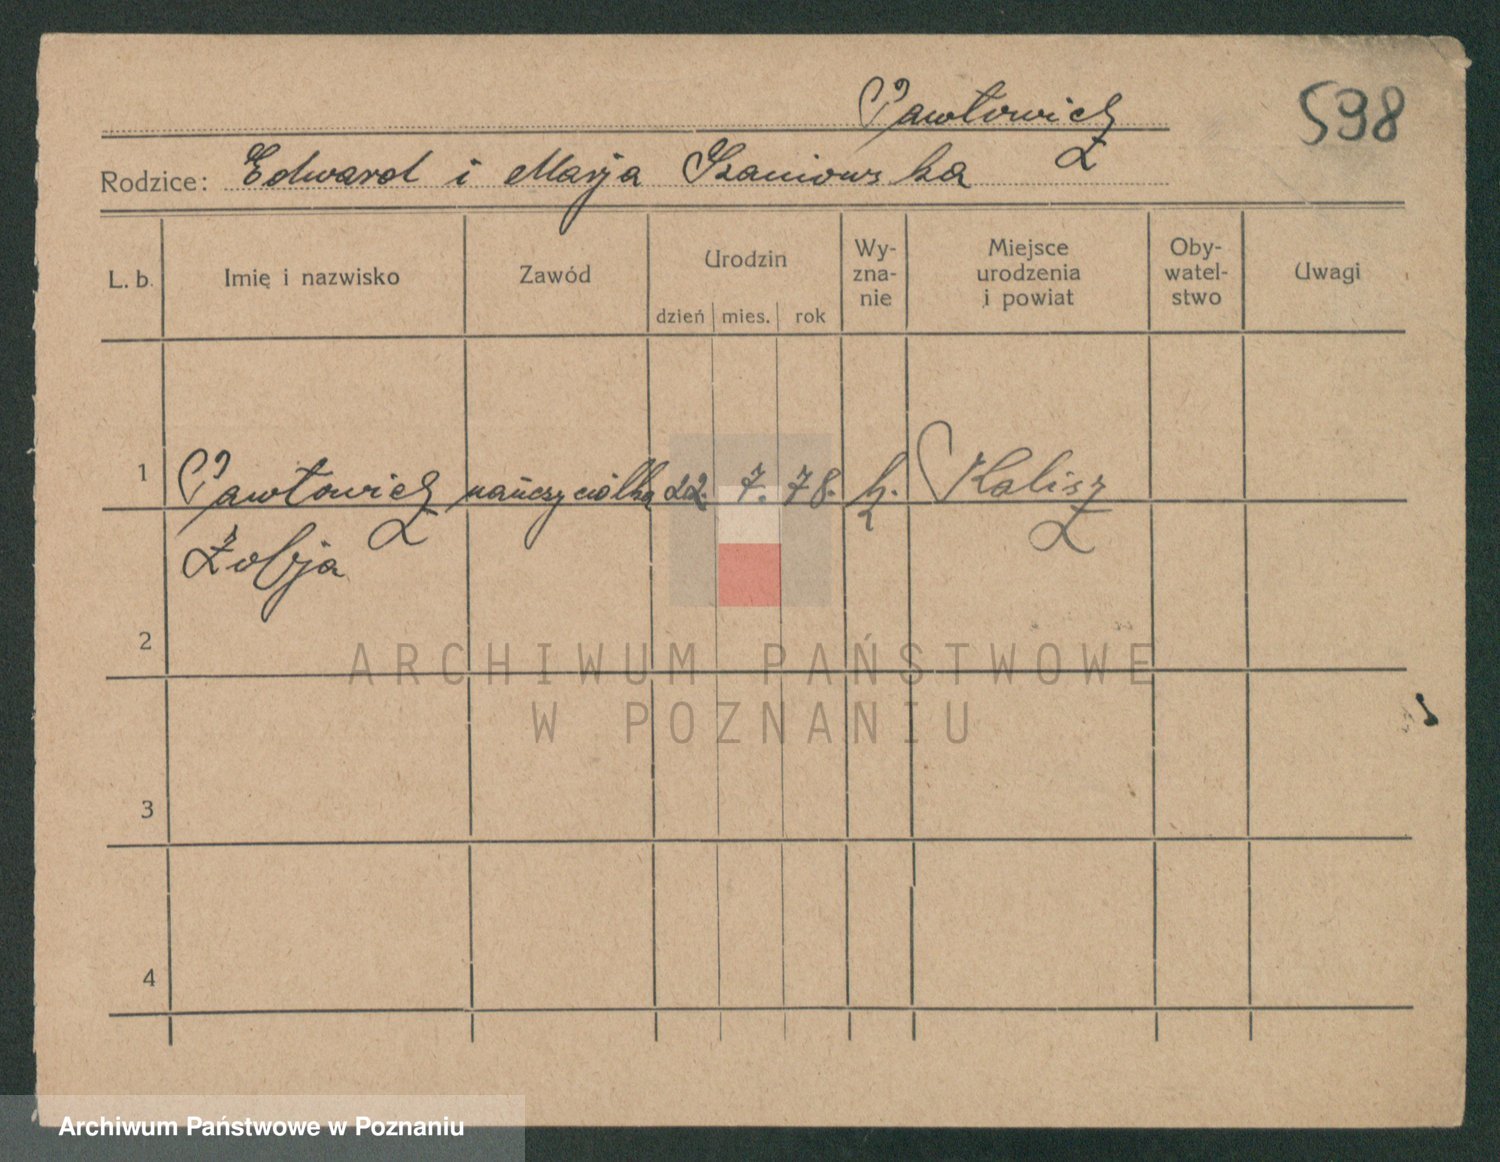 Pawłowicz
598
Rodzice: Edward i Marja Szaniowska
L. b. Imię i nazwisko Zawód Urodzin dzień mies. rok Wy-zna-nie Miejsce urodzenia i powiat Oby-watel-stwo Uwagi
1 Pawłowicz nauczycielka 22. 7. 78. k. Kalisz
Zofja
2
ARCHIWUM PAŃSTWOWE
W POZNANIU
3
4
Archiwum Państwowe w Poznaniu